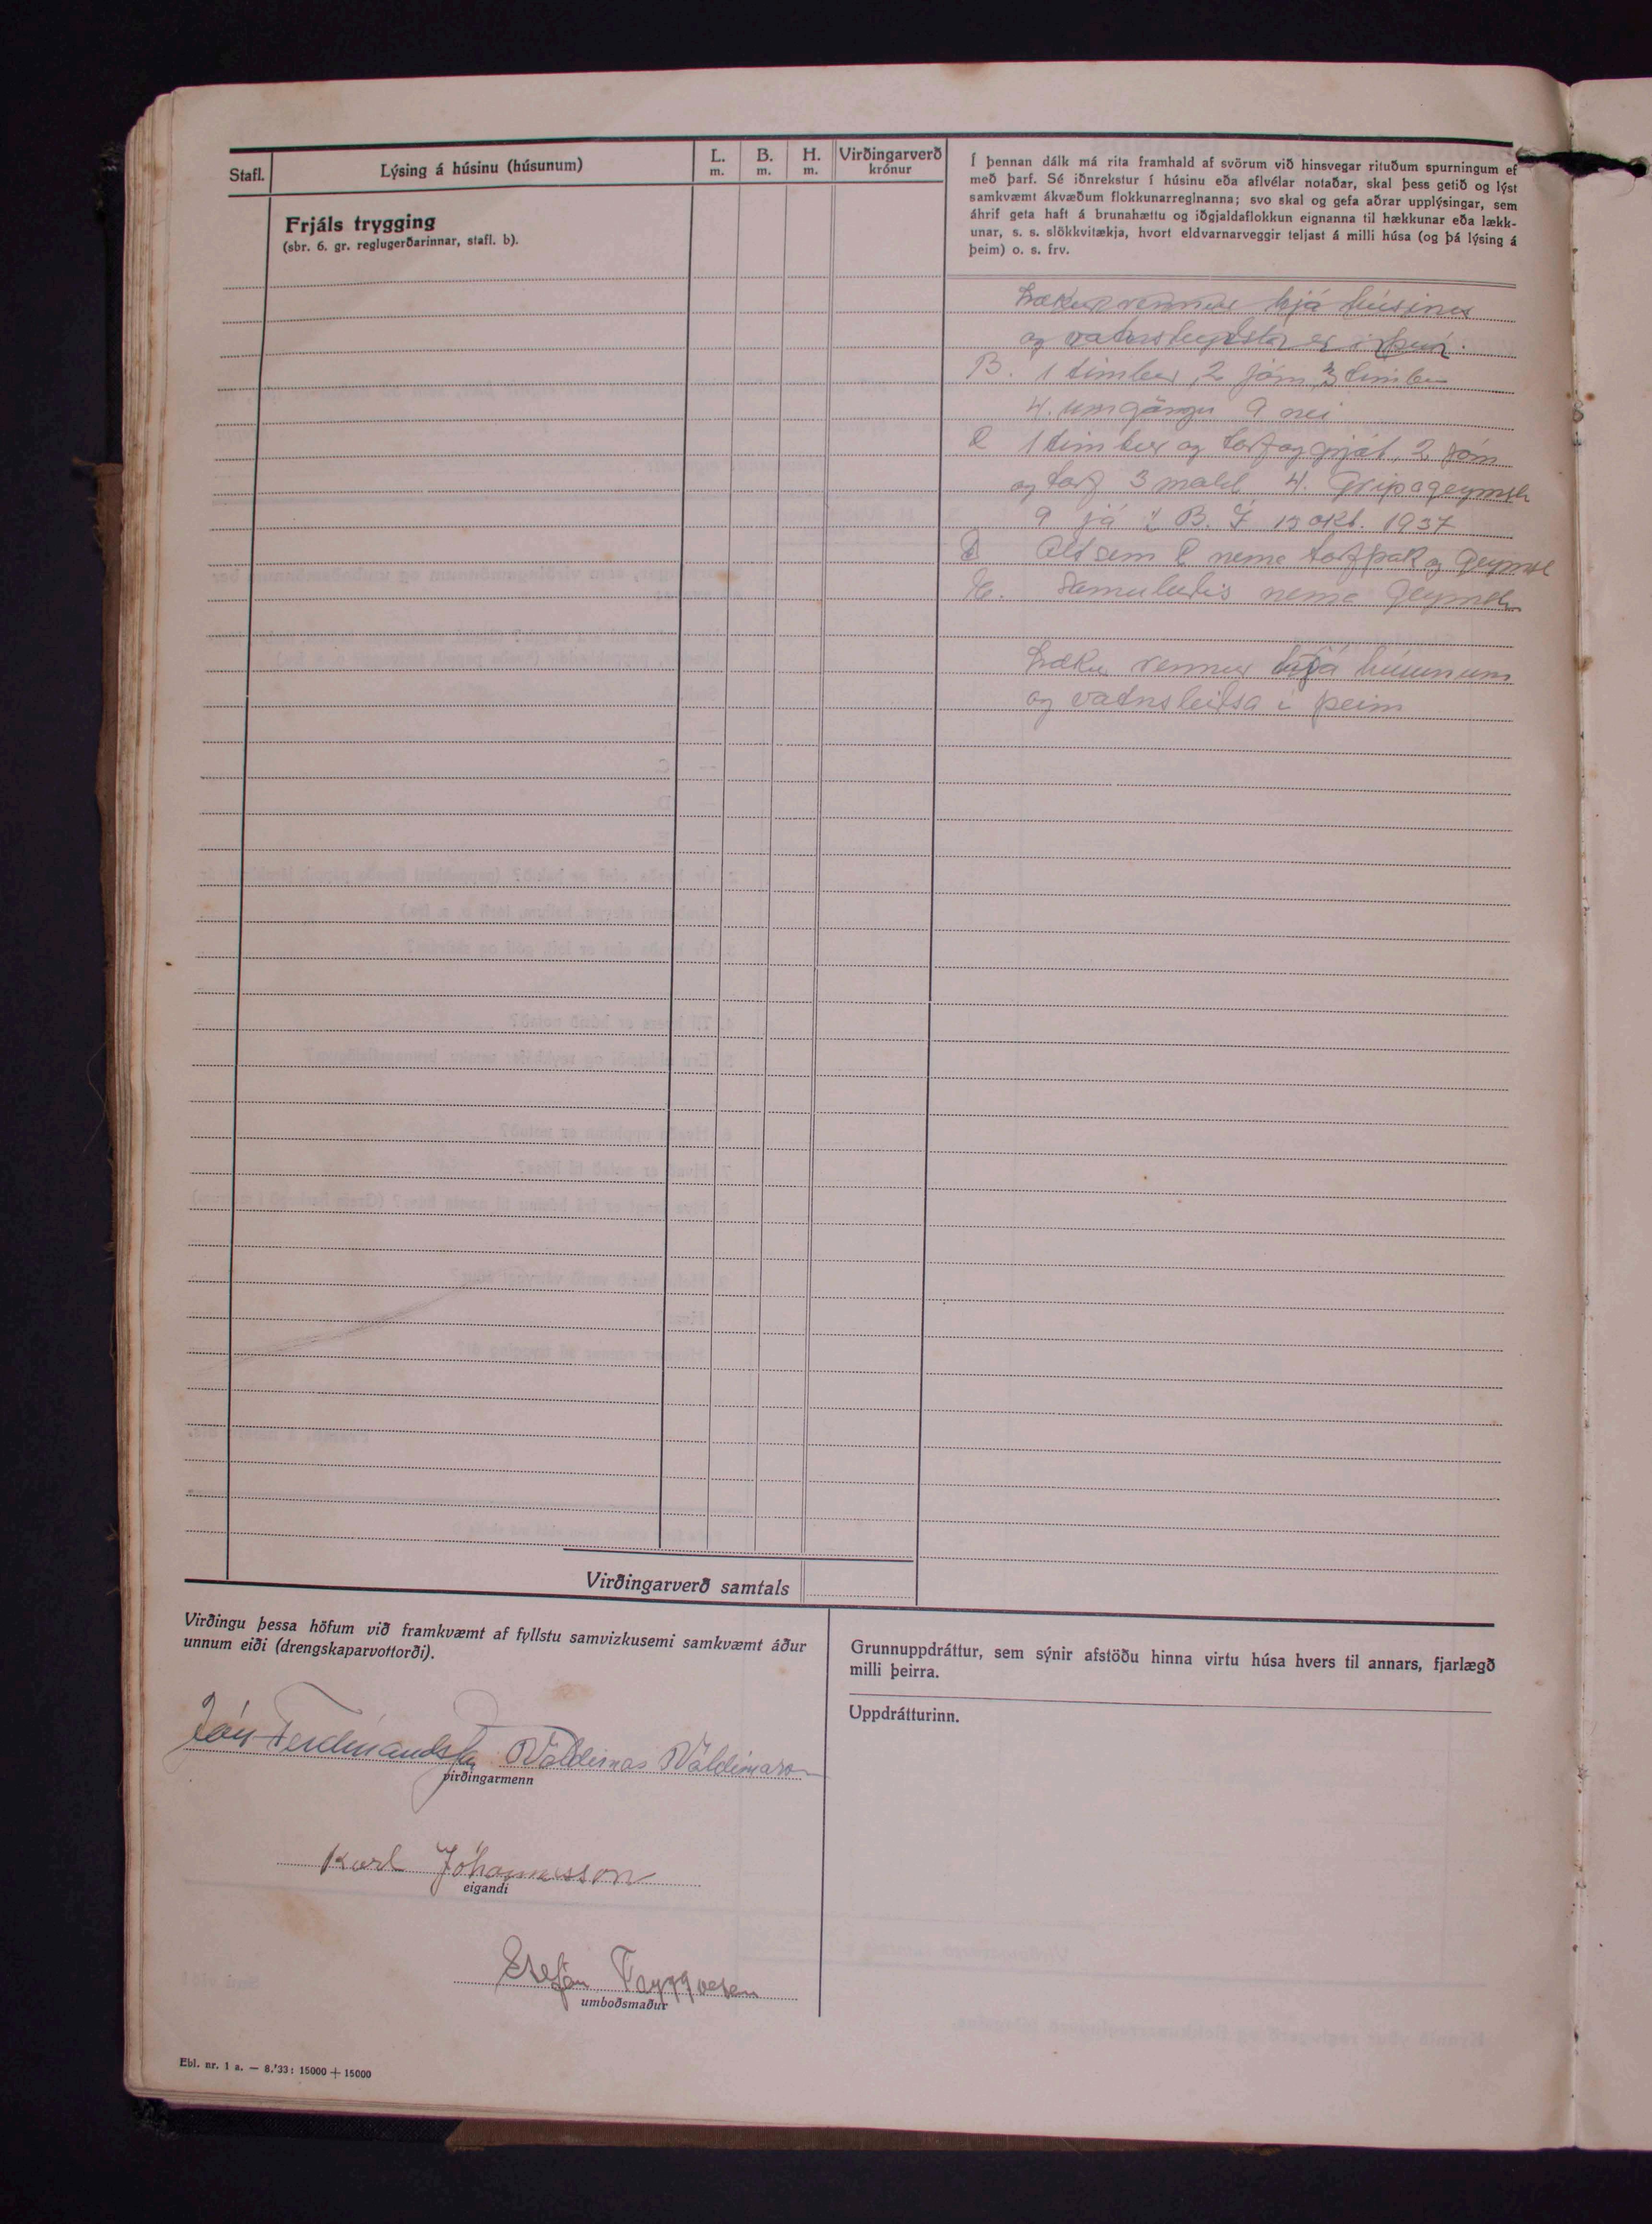 Stafl.
Lýsing á húsinu (húsunum)
L.
m.
B.
m.
H.
m.
Virðingarverð
krónur
Frjáls trygging
(sbr. 6. gr. reglugerðarinnar, stafl. b).
Í þennan dálk má rita framhald af svörum við hinsvegar rituðum spurningum ef
með þarf. Sé iðnrekstur í húsinu eða aflvélar notaðar, skal þess getið og lýst
samkvæmt ákvæðum flokkunarreglnanna; svo skal og gefa aðrar upplýsingar, sem
áhrif geta haft á brunahættu og iðgjaldaflokkun eignanna til hækkunar eða lækk-
unar, s. s. slökkvitækja, hvort eldvarnarveggir teljast á milli húsa (og þá lýsing á
þeim) o. s. frv.
Lækur rennur hjá húsinu
og er í
B. 1 timbur, 2 járn, 3 timbur
4. umgángu 9 nei
1 timbur og torf og grjót, 2 járn
og torf 3 4. Gripageymsla
9 já B. Í 15 okt. 1937
Alt sem nema torfþak og Geymsl
nema Geymsla
Lækur rennur hjá húsunum
og vatnsleiðsa í þeim
Virðingarverð samtals
Virðingu þessa höfum við framkvæmt af fyllstu samvizkusemi samkvæmt áður
unnum eiði (drengskaparvottorði).
Jón Ferdinandsson Valdimar Valdimarson
virðingarmenn
Karl Jóhannesson
eigandi
Stefán Tryggvason
umboðsmaður
Grunnuppdráttur, sem sýnir afstöðu hinna virtu húsa hvers til annars, fjarlægð
milli þeirra.
Uppdrátturinn.
Ebl. nr. 1 a. — 8.'33: 15000 + 15000